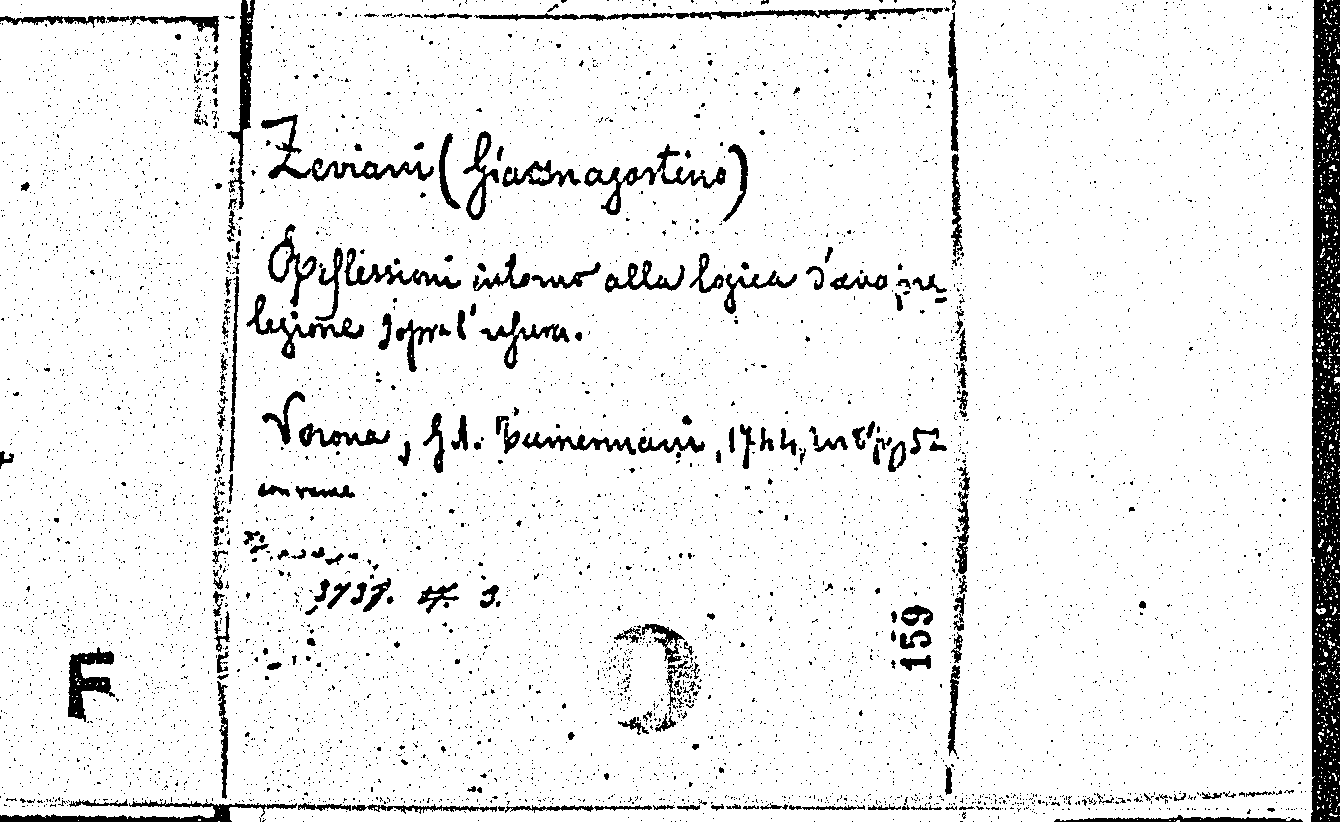 Zeviani (Gianagostino)
Riflessioni intorno alla logica d'una pre-
lezione sopra l'usura.
Verona, G.A. Tumermani, 1744, in 8° pg 52
con rame
3737. 3.
159
F